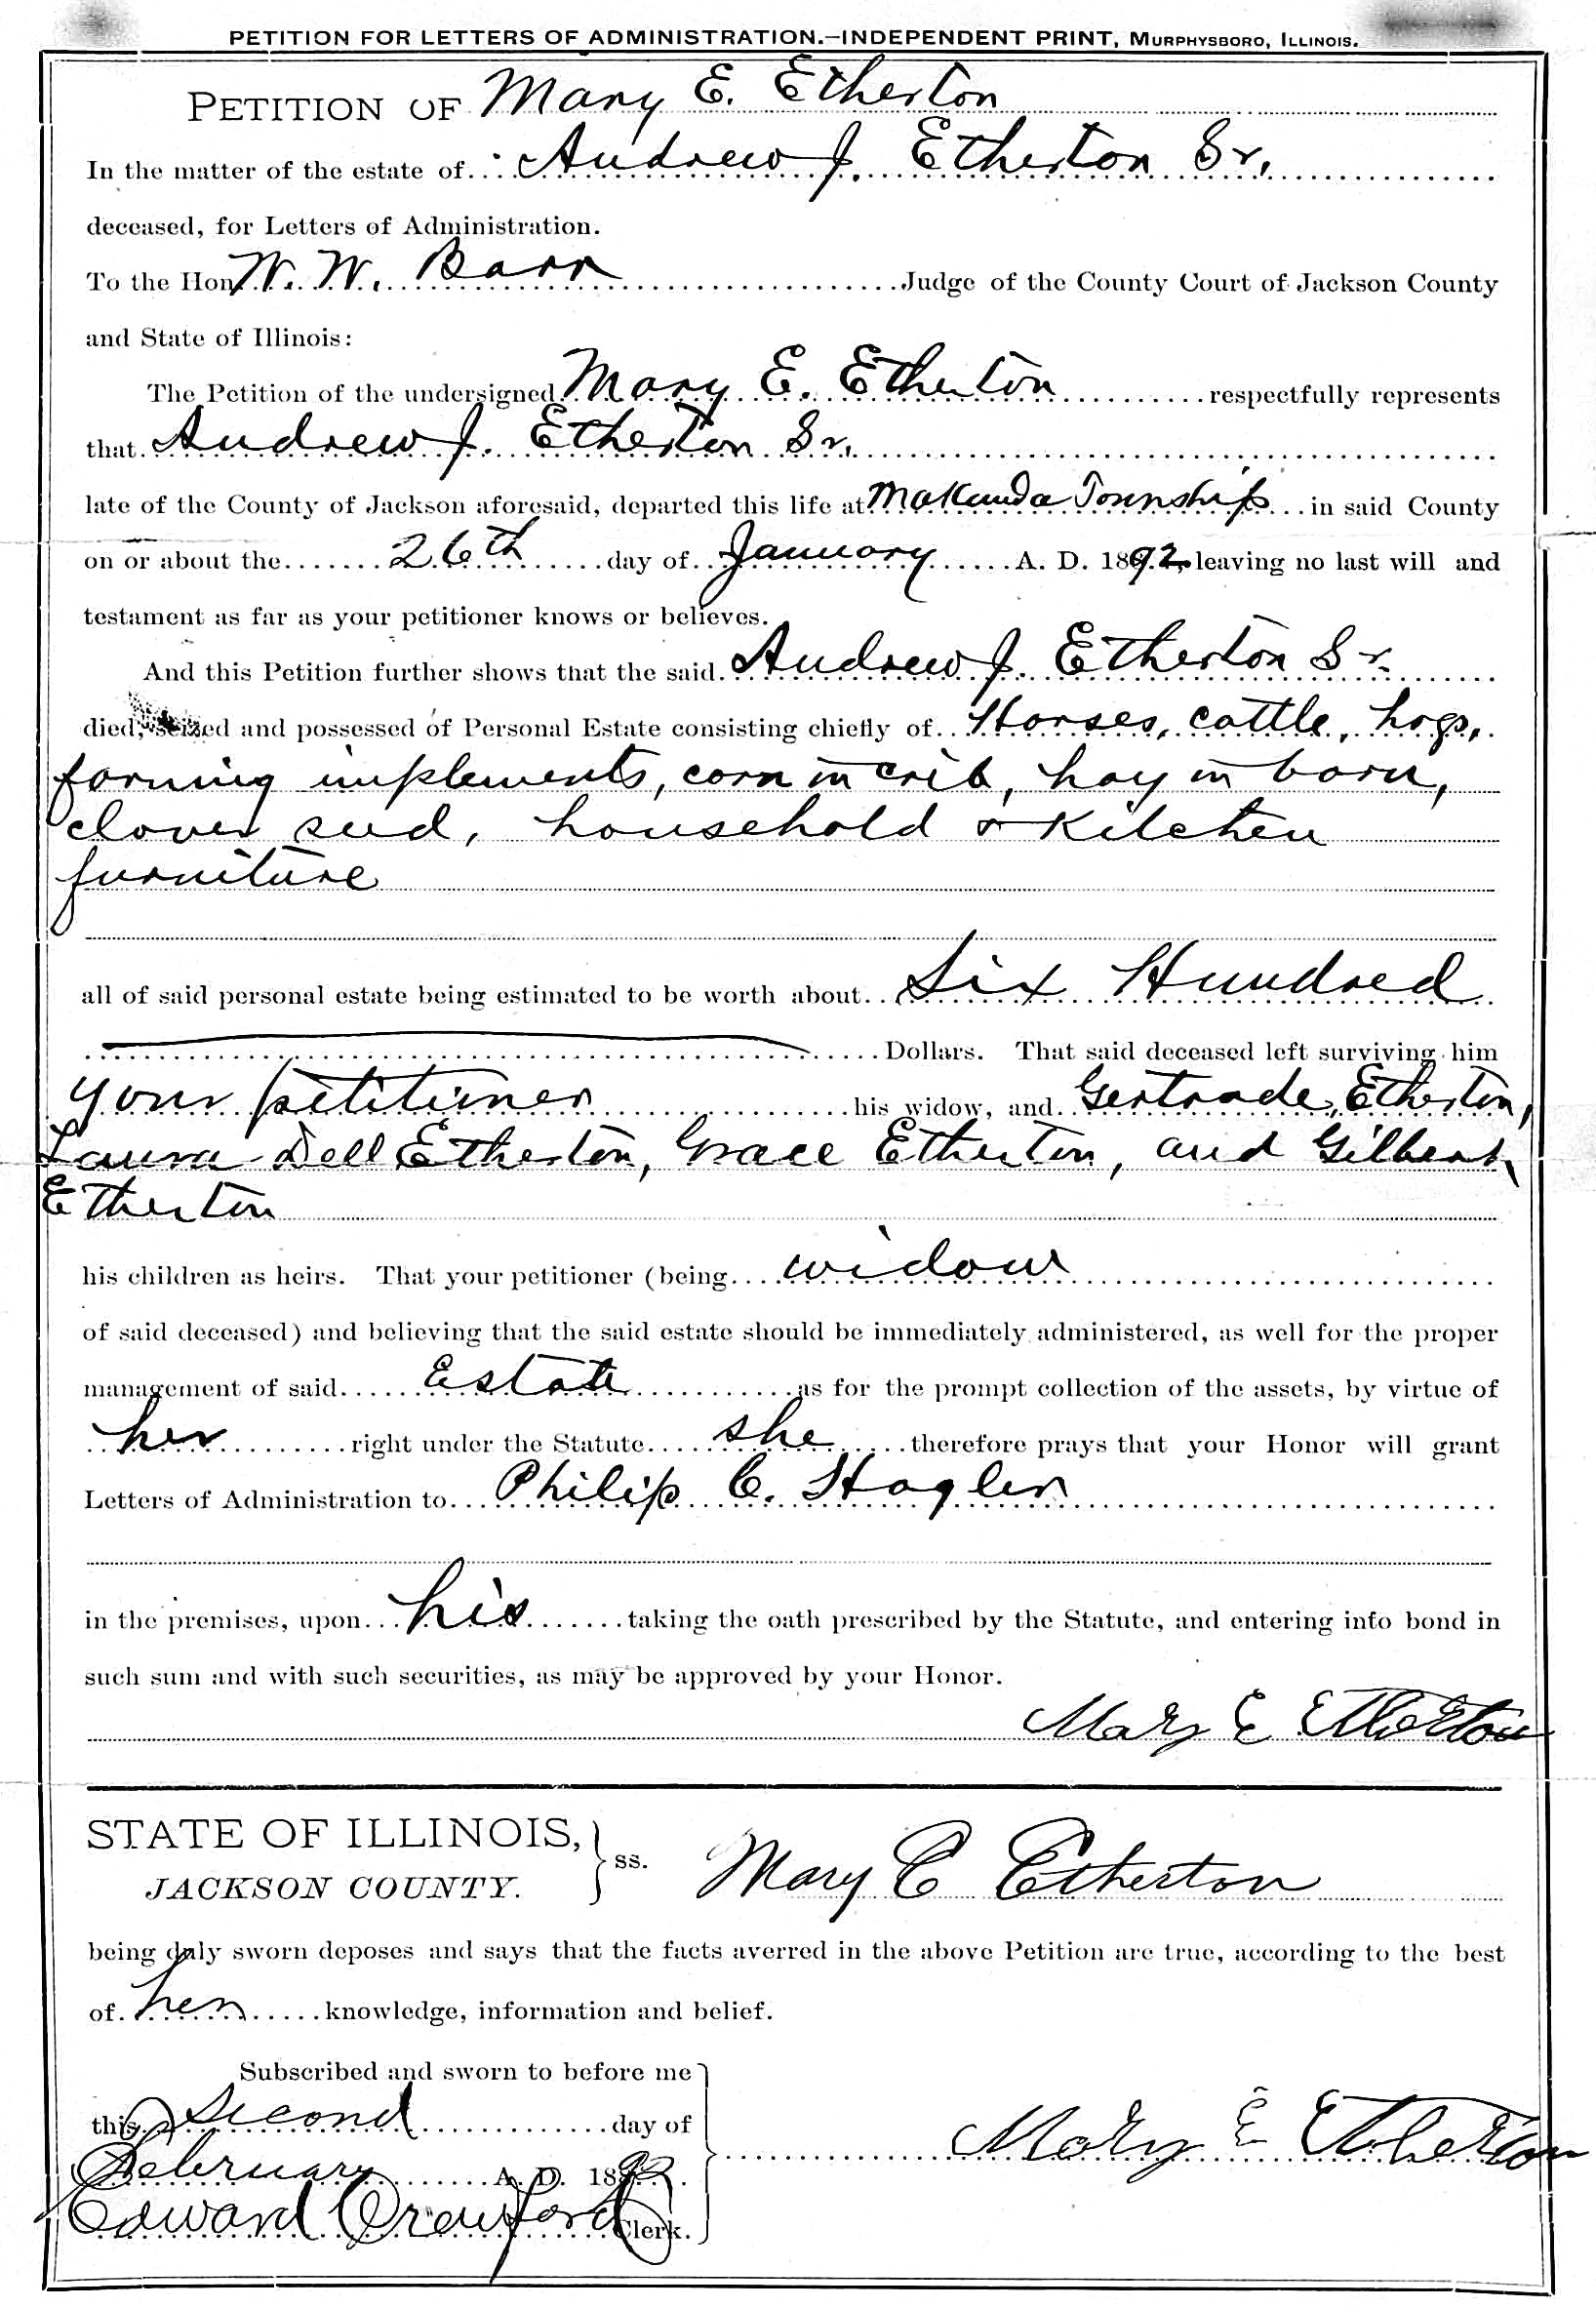 PETITION FOR LETTERS OF ADMINISTRATION.—INDEPENDENT PRINT, MURPHYSBORO, ILLINOIS.
PETITION OF Mary E. Etherton
In the matter of the estate of Andrew J. Etherton Sr.
deceased, for Letters of Administration.
To the Hon W. W. Barr Judge of the County Court of Jackson County
and State of Illinois:
The Petition of the undersigned Mary E. Etherton respectfully represents
that Andrew J. Etherton Sr.
late of the County of Jackson aforesaid, departed this life at Makanda Township in said County
on or about the 26th day of January A. D. 1892, leaving no last will and
testament as far as your petitioner knows or believes.
And this Petition further shows that the said Andrew J. Etherton Sr.
died, seized and possessed of Personal Estate consisting chiefly of Horses, cattle, hogs,
farming implements, corn in crib, hay in barn,
clover seed, household & Kitchen
furniture
all of said personal estate being estimated to be worth about Six Hundred
Dollars. That said deceased left surviving him
your petitioner his widow, and Gertrude Etherton,
Laura Dell Etherton, Grace Etherton, and Gilbert
Etherton
his children as heirs. That your petitioner (being widow
of said deceased) and believing that the said estate should be immediately administered, as well for the proper
management of said Estate as for the prompt collection of the assets, by virtue of
her right under the Statute she therefore prays that your Honor will grant
Letters of Administration to Philip C. Hagler
in the premises, upon his taking the oath prescribed by the Statute, and entering into bond in
such sum and with such securities, as may be approved by your Honor.
Mary E Etherton
STATE OF ILLINOIS,
JACKSON COUNTY. } ss. Mary E Etherton
being duly sworn deposes and says that the facts averred in the above Petition are true, according to the best
of her knowledge, information and belief.
Subscribed and sworn to before me
this Second day of
February A. D. 1892
Mary E Etherton
Edward Crawford Clerk.